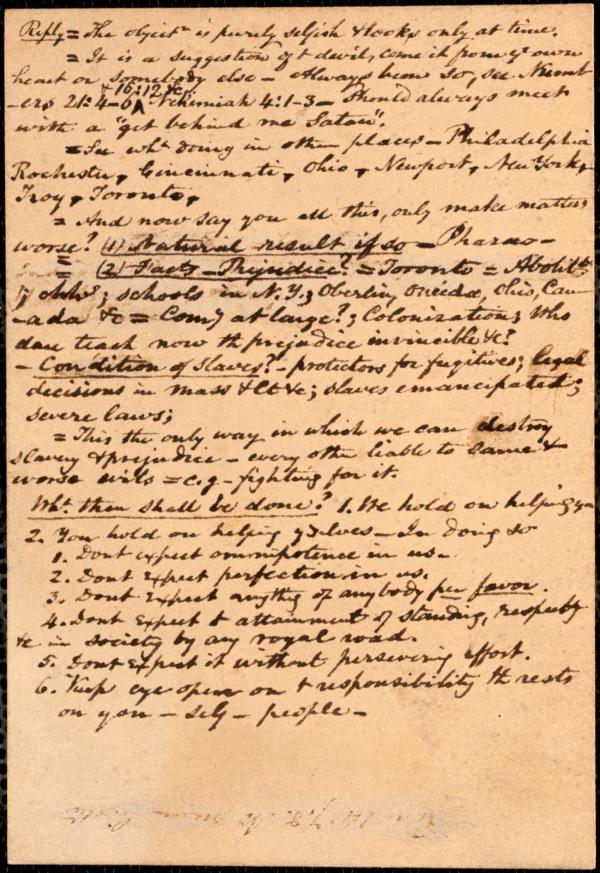 Reply = The object.n is purely selfish & looks only at time.
= It is a suggestion of t devil, come it from yr own
heart or somebody else – Always been so, see Numb
& 16:12 &c;
-ers 21:4-6 ^ Nehemiah 4:1-3 – Should always meet
with a "get behind me Satan".
= See wht. doing in other places – Philadelphia
Rochester, Cincinnati, Ohio, Newport, New York,
Troy, Toronto,
= And now say you all this, only make matters
worse? (1) Natural result if so – Pharao –
= (2) Facts – Prejudice? = Toronto = Abolit
schools in N.Y.; Oberlin, Oneida, Ohio, Can
-ada &c = Comy at large?; Colonization; Who
dare teach now th prejudice invincible &c?
– Condition of Slaves? – protectors for fugitives; legal
decisions in Mass & Ct &c; slaves emancipated;
severe laws;
= This the only way in which we can destroy
slavery & prejudice – every other liable to same &
worse evils = e.g – fighting for it.
Wht. then shall be done? 1. We hold on helping y–
2. You hold on helping yrselves – In doing so
1. Dont expect omnipotence in us –
2. Dont expect perfection in us.
3. Dont expect anythg of anybody per favor.
4. Dont expect t attainment of standing, respecty
&c in society by any royal road.
5. Dont expect it without persevering effort.
6. Keep eye open on t responsibility th rests
on you – self – people –